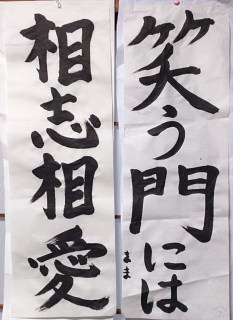 笑う門には
まま
相志相愛